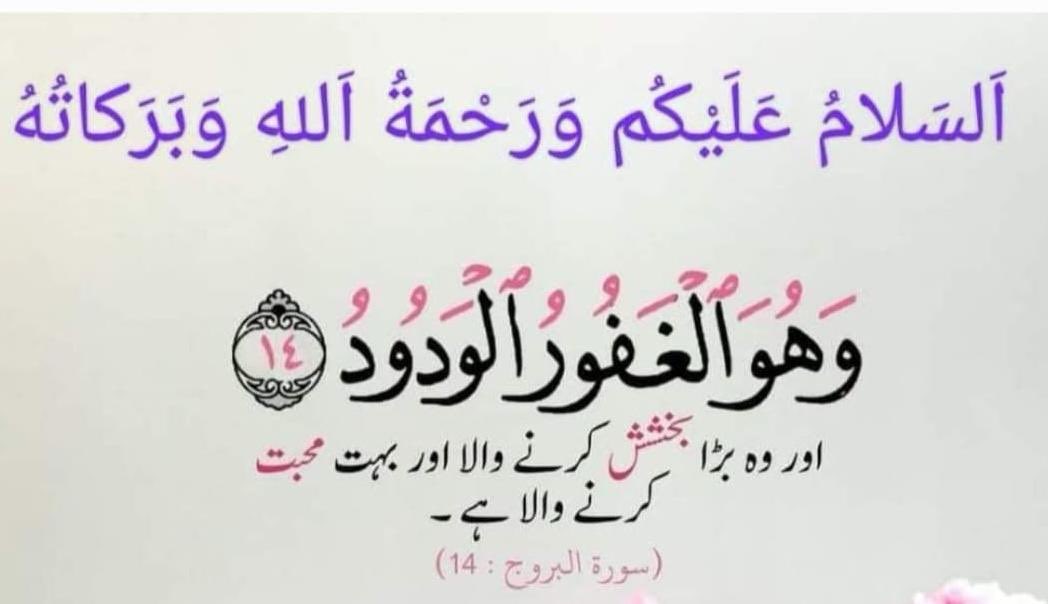 اَلسَلامُ عَلَيْكُم وَرَحْمَةُ اَللهِ وَبَرَكاتُهُ
وَهُوَ ٱلْغَفُورُ ٱلْوَدُودُ ١٤
اور وہ بڑا بخشش کرنے والا اور بہت محبت
کرنے والا ہے ۔
(سورة البروج : 14)